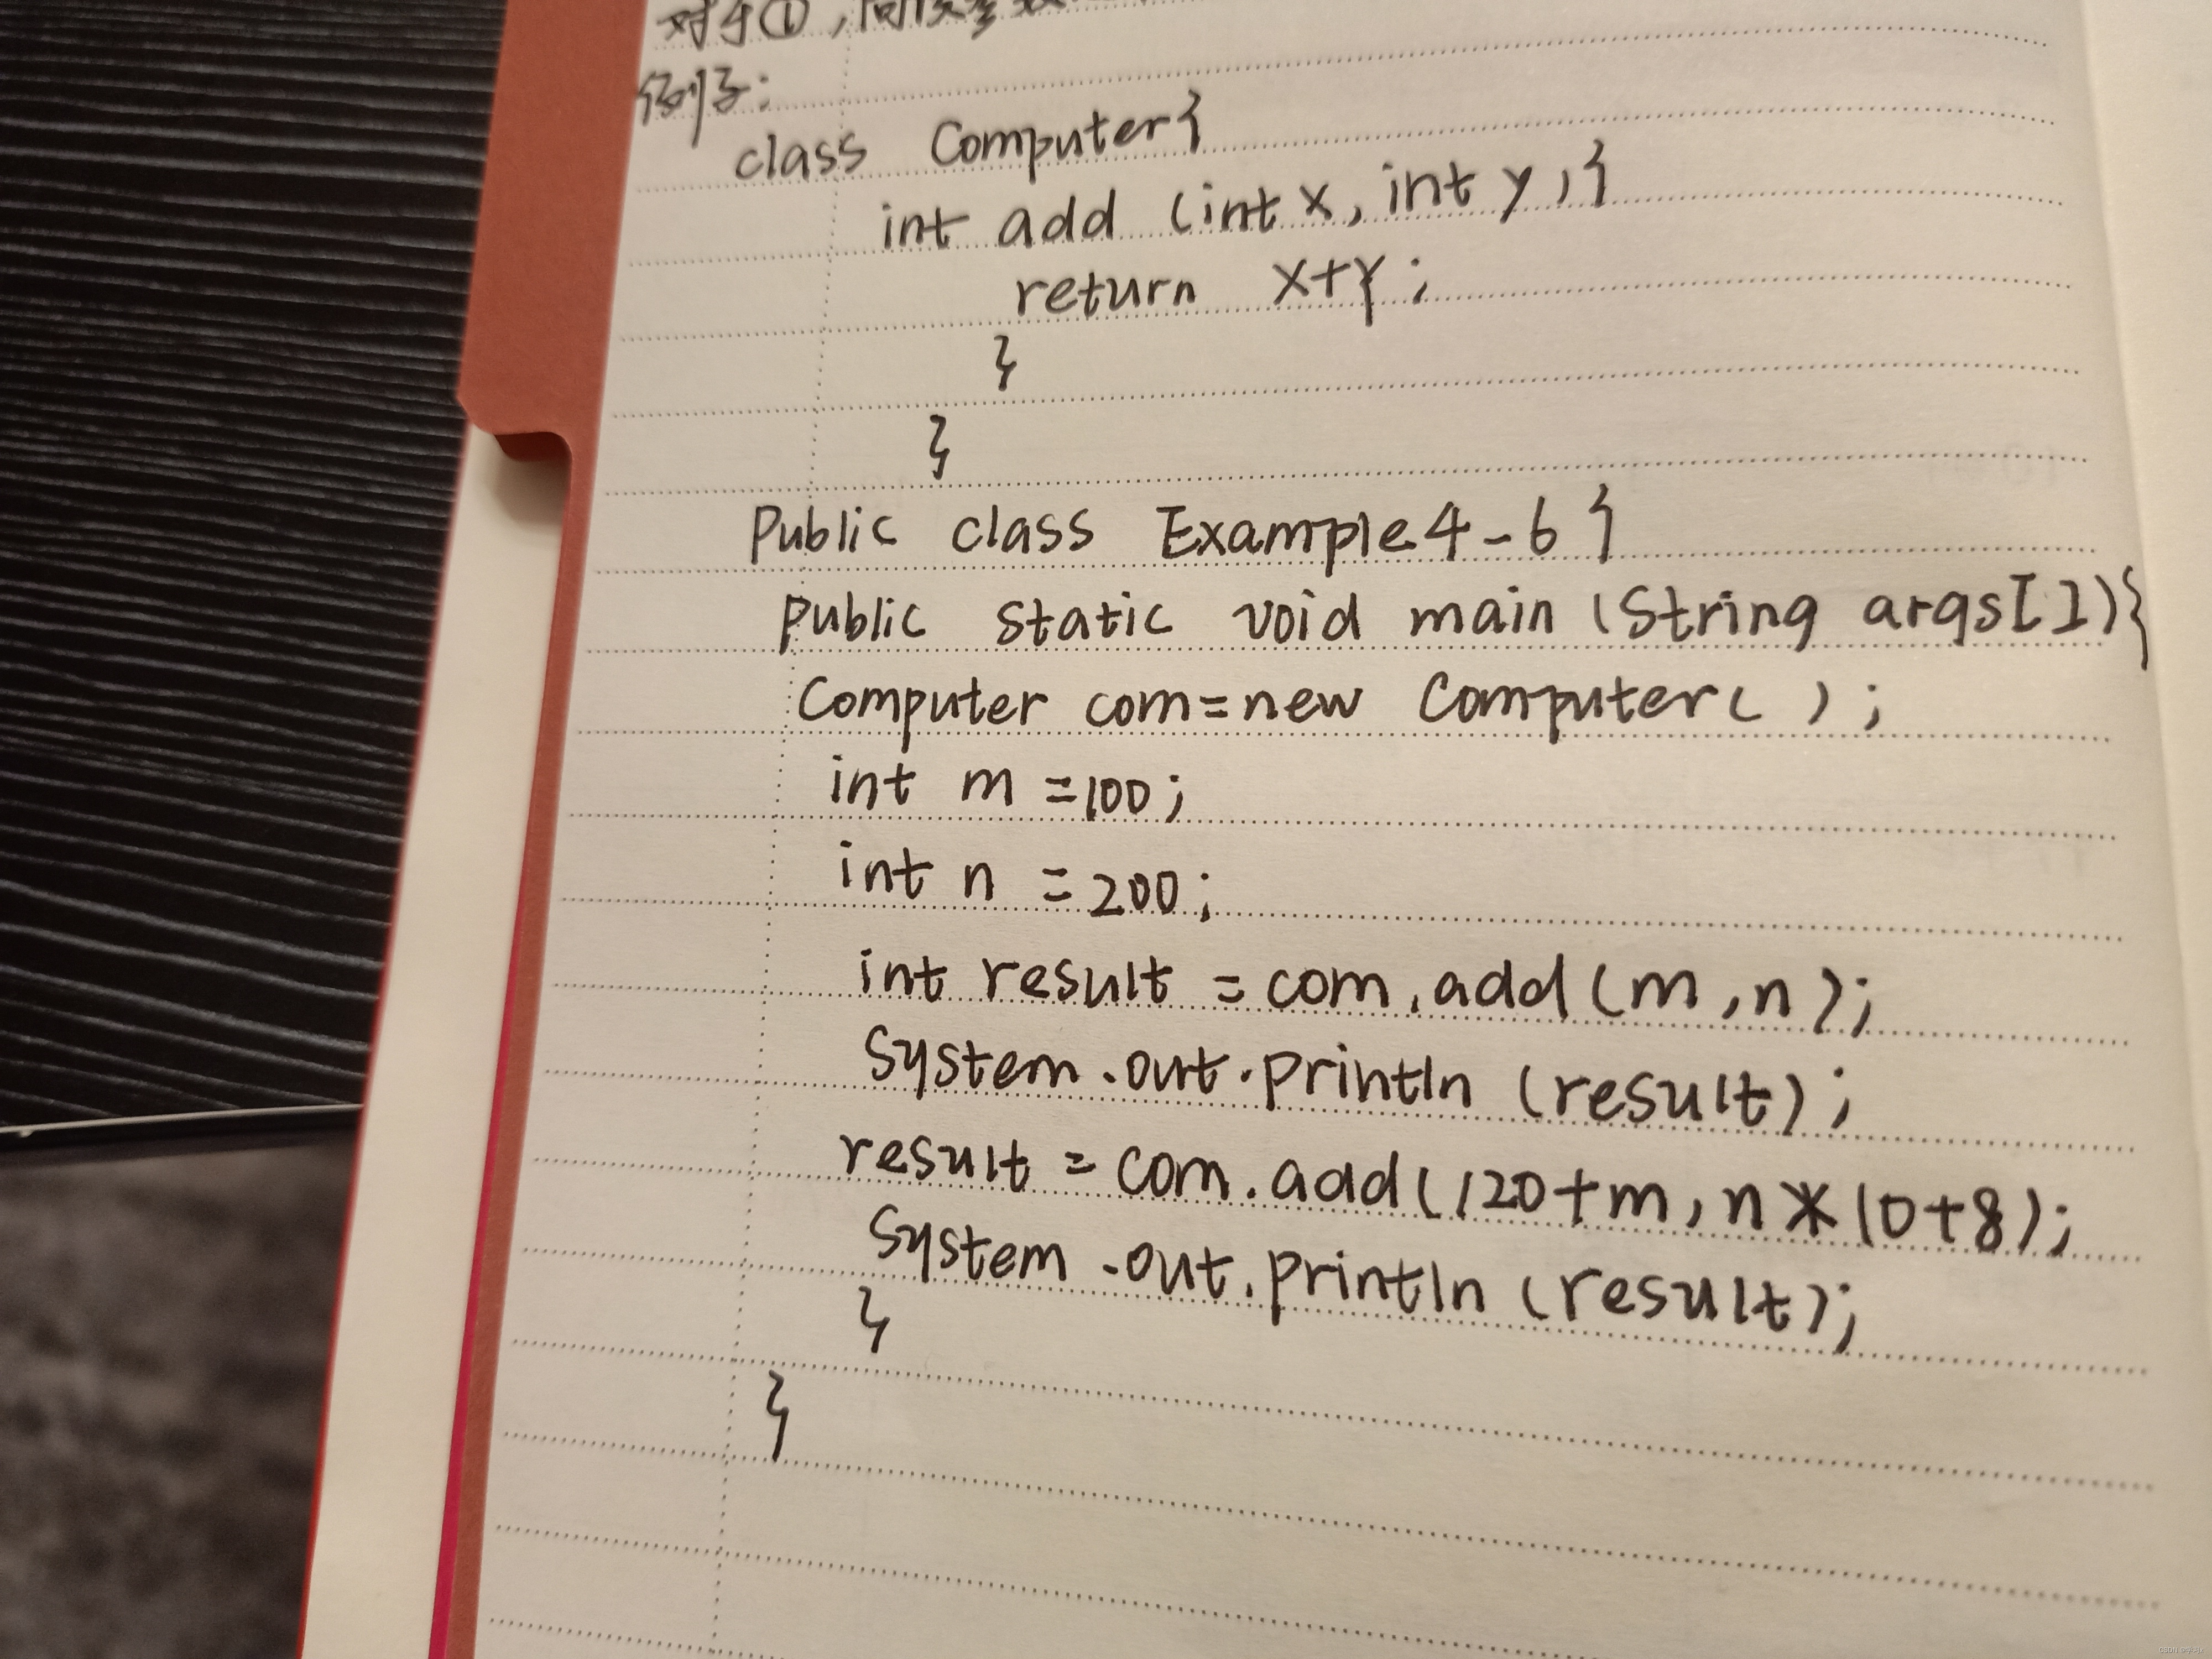 对于①,向
例子:
class Computer{
int add (int x, int y){
return x+y;
}
}
Public class Example4-6{
public static void main (String args[]){
Computer com=new Computer( );
int m =100;
int n =200;
int result =com.add(m,n);
System.out.println (result);
result =com.add(120+m,n*10+8);
System.out.println (result);
}
}